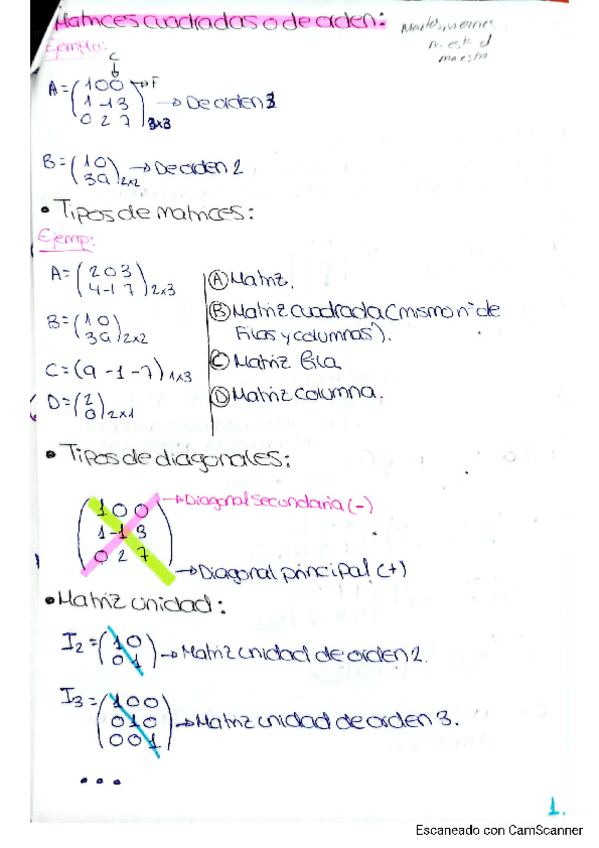 Matrices cuadradas o de orden:
Martes, viernes
n esta el
maestro
Ejemplo:
C
↓
A=(1 0 0 →F
1 -1 3 → De orden 3
0 2 7)3x3
B=(1 0 → De orden 2
3 9)2x2
• Tipos de matrices:
Ejemp:
A=(2 0 3
4 -1 7)2x3
B=(1 0
3 9)2x2
C=(9 -1 -7)1x3
D=(2
0)2x1
Ⓐ Matriz.
Ⓑ Matriz cuadrada (mismo nº de
filas y columnas).
Ⓒ Matriz fila
Ⓓ Matriz columna.
• Tipos de diagonales:
(1 0 0 → Diagonal secundaria (-)
1 -1 3
0 2 7) → Diagonal principal (+)
• Matriz unidad:
I2=(1 0
0 1) → Matriz unidad de orden 2.
I3=(1 0 0
0 1 0 → Matriz unidad de orden 3.
0 0 1)
...
1.
Escaneado con CamScanner